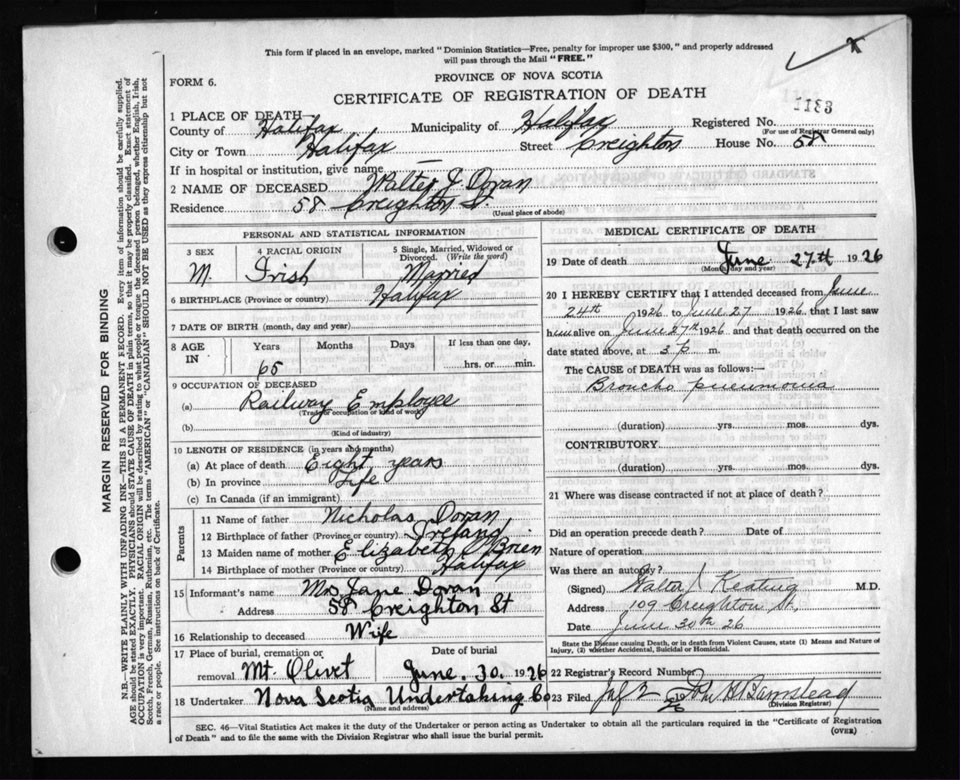 This form if placed in an envelope, marked "Dominion Statistics—Free, penalty for improper use $300," and properly addressed
will pass through the Mail "FREE."
PROVINCE OF NOVA SCOTIA
FORM 6.
CERTIFICATE OF REGISTRATION OF DEATH
1133
1 PLACE OF DEATH—
County of Halifax Municipality of Halifax Registered No.
(For use of Registrar General only)
City or Town Halifax Street Creighton House No. 58
If in hospital or institution, give name —
2 NAME OF DECEASED Walter J. Doran
Residence 58 Creighton St
(Usual place of abode)
PERSONAL AND STATISTICAL INFORMATION
3 SEX 4 RACIAL ORIGIN 5 Single, Married, Widowed or Divorced. (Write the word)
M. Irish Married
6 BIRTHPLACE (Province or country) Halifax
7 DATE OF BIRTH (month, day and year)
8 AGE IN Years Months Days If less than one day,
65 hrs. or min.
9 OCCUPATION OF DECEASED
(a) Railway Employee
(Trade or occupation or kind of work)
(b)
(Kind of industry)
10 LENGTH OF RESIDENCE (in years and months)
(a) At place of death Eight years
(b) In province Life
(c) In Canada (if an immigrant)
Parents
11 Name of father Nicholas Doran
12 Birthplace of father (Province or country) Ireland
13 Maiden name of mother Elizabeth O'Brien
14 Birthplace of mother (Province or country) Halifax
15 Informant's name Mrs Jane Doran
Address 58 Creighton St
16 Relationship to deceased Wife
17 Place of burial, cremation or removal Mt. Olivet Date of burial June. 30. 1926
18 Undertaker Nova Scotia Undertaking Co
(Name and address)
MEDICAL CERTIFICATE OF DEATH
19 Date of death June 27th 1926
(Month, day and year)
20 I HEREBY CERTIFY that I attended deceased from June
24th 1926 to June 27 1926, that I last saw
him alive on June 27th 1926 and that death occurred on the
date stated above, at 3 p m.
The CAUSE of DEATH was as follows:—
Broncho pneumonia
(duration) yrs. mos. dys.
CONTRIBUTORY
(duration) yrs. mos. dys.
21 Where was disease contracted if not at place of death?
Did an operation precede death? Date of
Nature of operation
Was there an autopsy?
(Signed) Walter J Keating M.D.
Address 109 Creighton St,
Date June 30th 26
State the Disease causing Death, or in death from Violent Causes, state (1) Means and Nature of
Injury, (2) whether Accidental, Suicidal or Homicidal.
22 Registrar's Record Number
23 Filed July 2 1926 John H Barnstead
(Division Registrar)
SEC. 46—Vital Statistics Act makes it the duty of the Undertaker or person acting as Undertaker to obtain all the particulars required in the "Certificate of Registration
of Death" and to file the same with the Division Registrar who shall issue the burial permit.
(OVER)
MARGIN RESERVED FOR BINDING
N.B.—WRITE PLAINLY WITH UNFADING INK—THIS IS A PERMANENT RECORD. Every item of information should be carefully supplied.
AGE should be stated EXACTLY. PHYSICIANS should STATE CAUSE OF DEATH in plain terms, so that it may be properly classified. Exact statement of
OCCUPATION is very important. RACIAL ORIGIN will be described by stating to what people or tongue the deceased person belonged, whether English, Irish,
Scotch, French, German, Russian, Ruthenian, etc. The terms "AMERICAN" or "CANADIAN" SHOULD NOT BE USED as they express citizenship but not
a race or people. See instructions on back of Certificate.